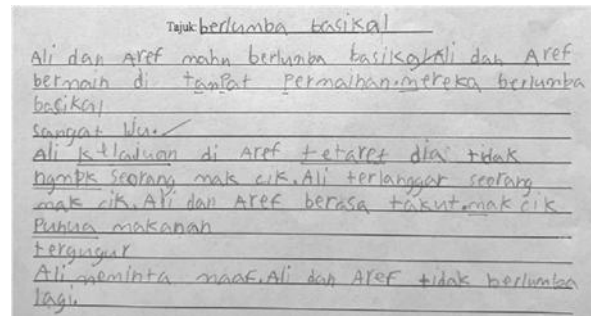 Tajuk: berlumba basikal
Ali dan Aref mahn berlumba basikal Ali dan Aref
bermain di tanpat permaihan. mereka berlumba
basikal
sangat
Ali ktlajuan di Aref tetaret dia tidak
ngmpk seorang mak cik. Ali terlanggar seorang
mak cik. Ali dan Aref berasa takut. mak cik
Punua makanan
tergugur
Ali meminta maaf. Ali dan Aref tidak berlumba
lagi.